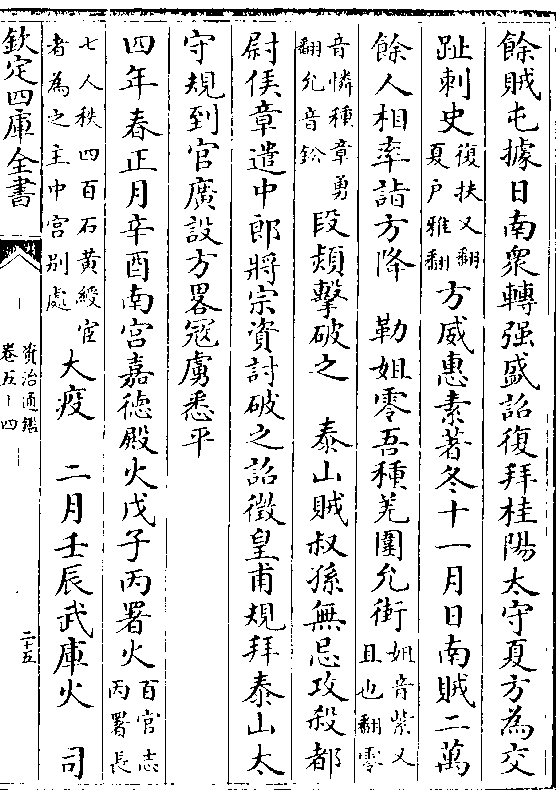 餘賊屯據日南衆轉强盛詔復拜桂陽太守夏方為交
趾刺史復扶又翻夏戸雅翻方威惠素著冬十一月日南賊二萬
餘人相率詣方降　勒姐零吾種羌圍允街姐音紫又且也翻零
音憐種章勇翻允音鈆段熲擊破之　泰山賊叔孫無忌攻殺都
尉侯章遣中郎將宗資討破之詔徵皇甫規拜泰山太
守規到官廣設方畧寇虜悉平
四年春正月辛酉南宫嘉德殿火戊子丙署火百官志丙署長
七人秩四百石黄綬宦者為之主中宫别處大疫　二月壬辰武庫火　司
欽定四庫全書
資治通鑑
卷五十四
二十五